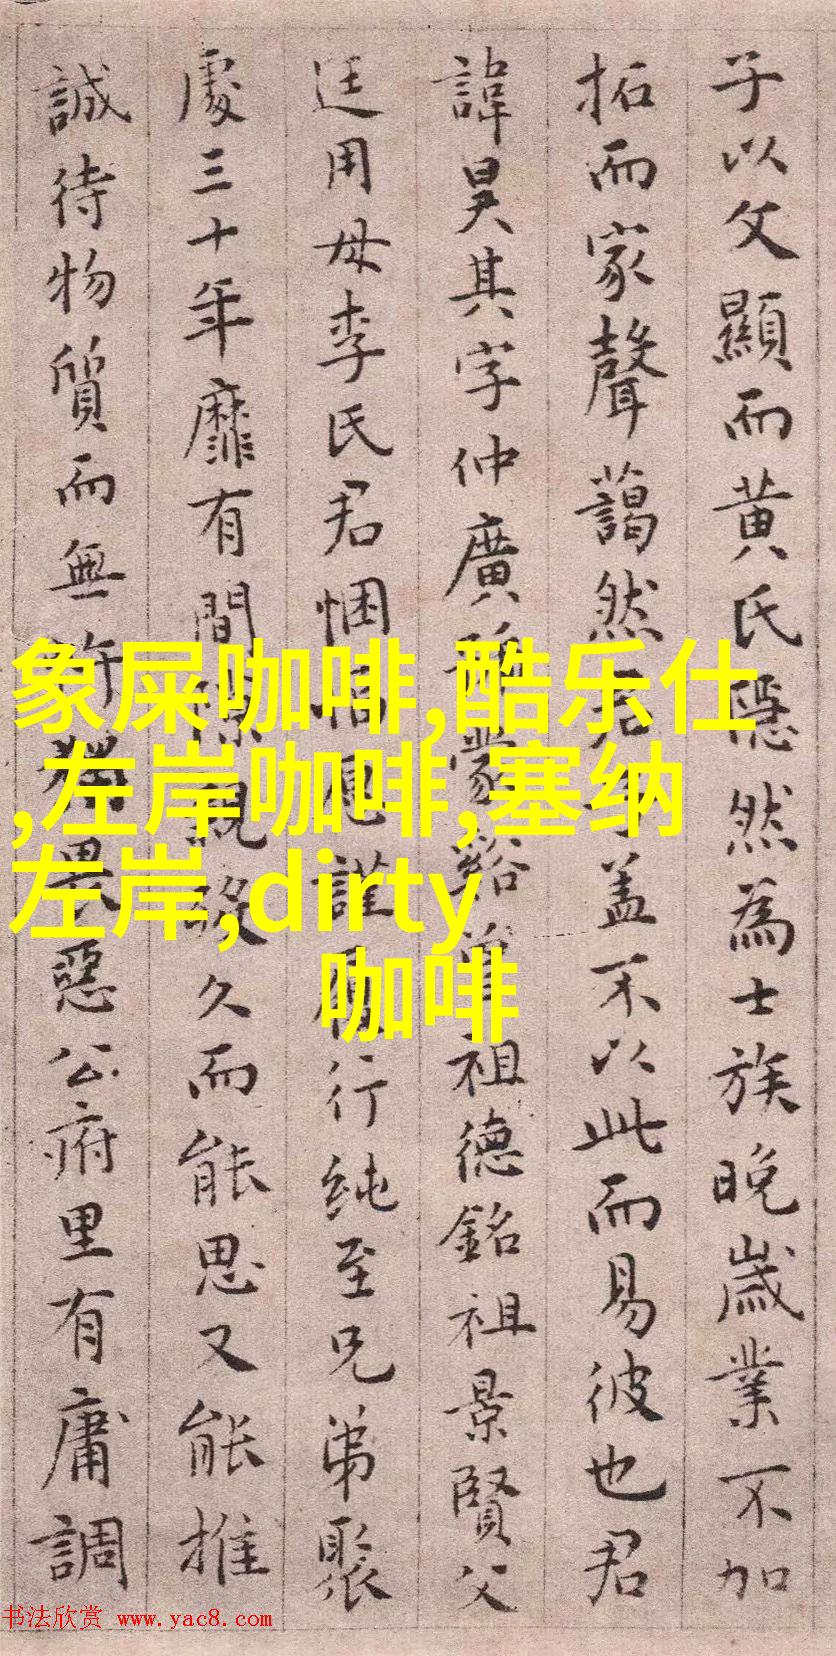 子以父顯而黄氏隱然為士族晚歲業不加
拓而家聲藹然盖不以此而易彼也君
諱昊其字仲廣蒙谿祖德銘祖景賢父
廷用母李氏君悃謹行純至兄弟聚
處三十年靡有間親久而能思又能推
誠待物質而無畏惡公府里有庸調
象屎咖啡,酷乐仕
,左岸咖啡,塞纳
左岸,dirty
咖啡
书法欣赏 www.yac8.com